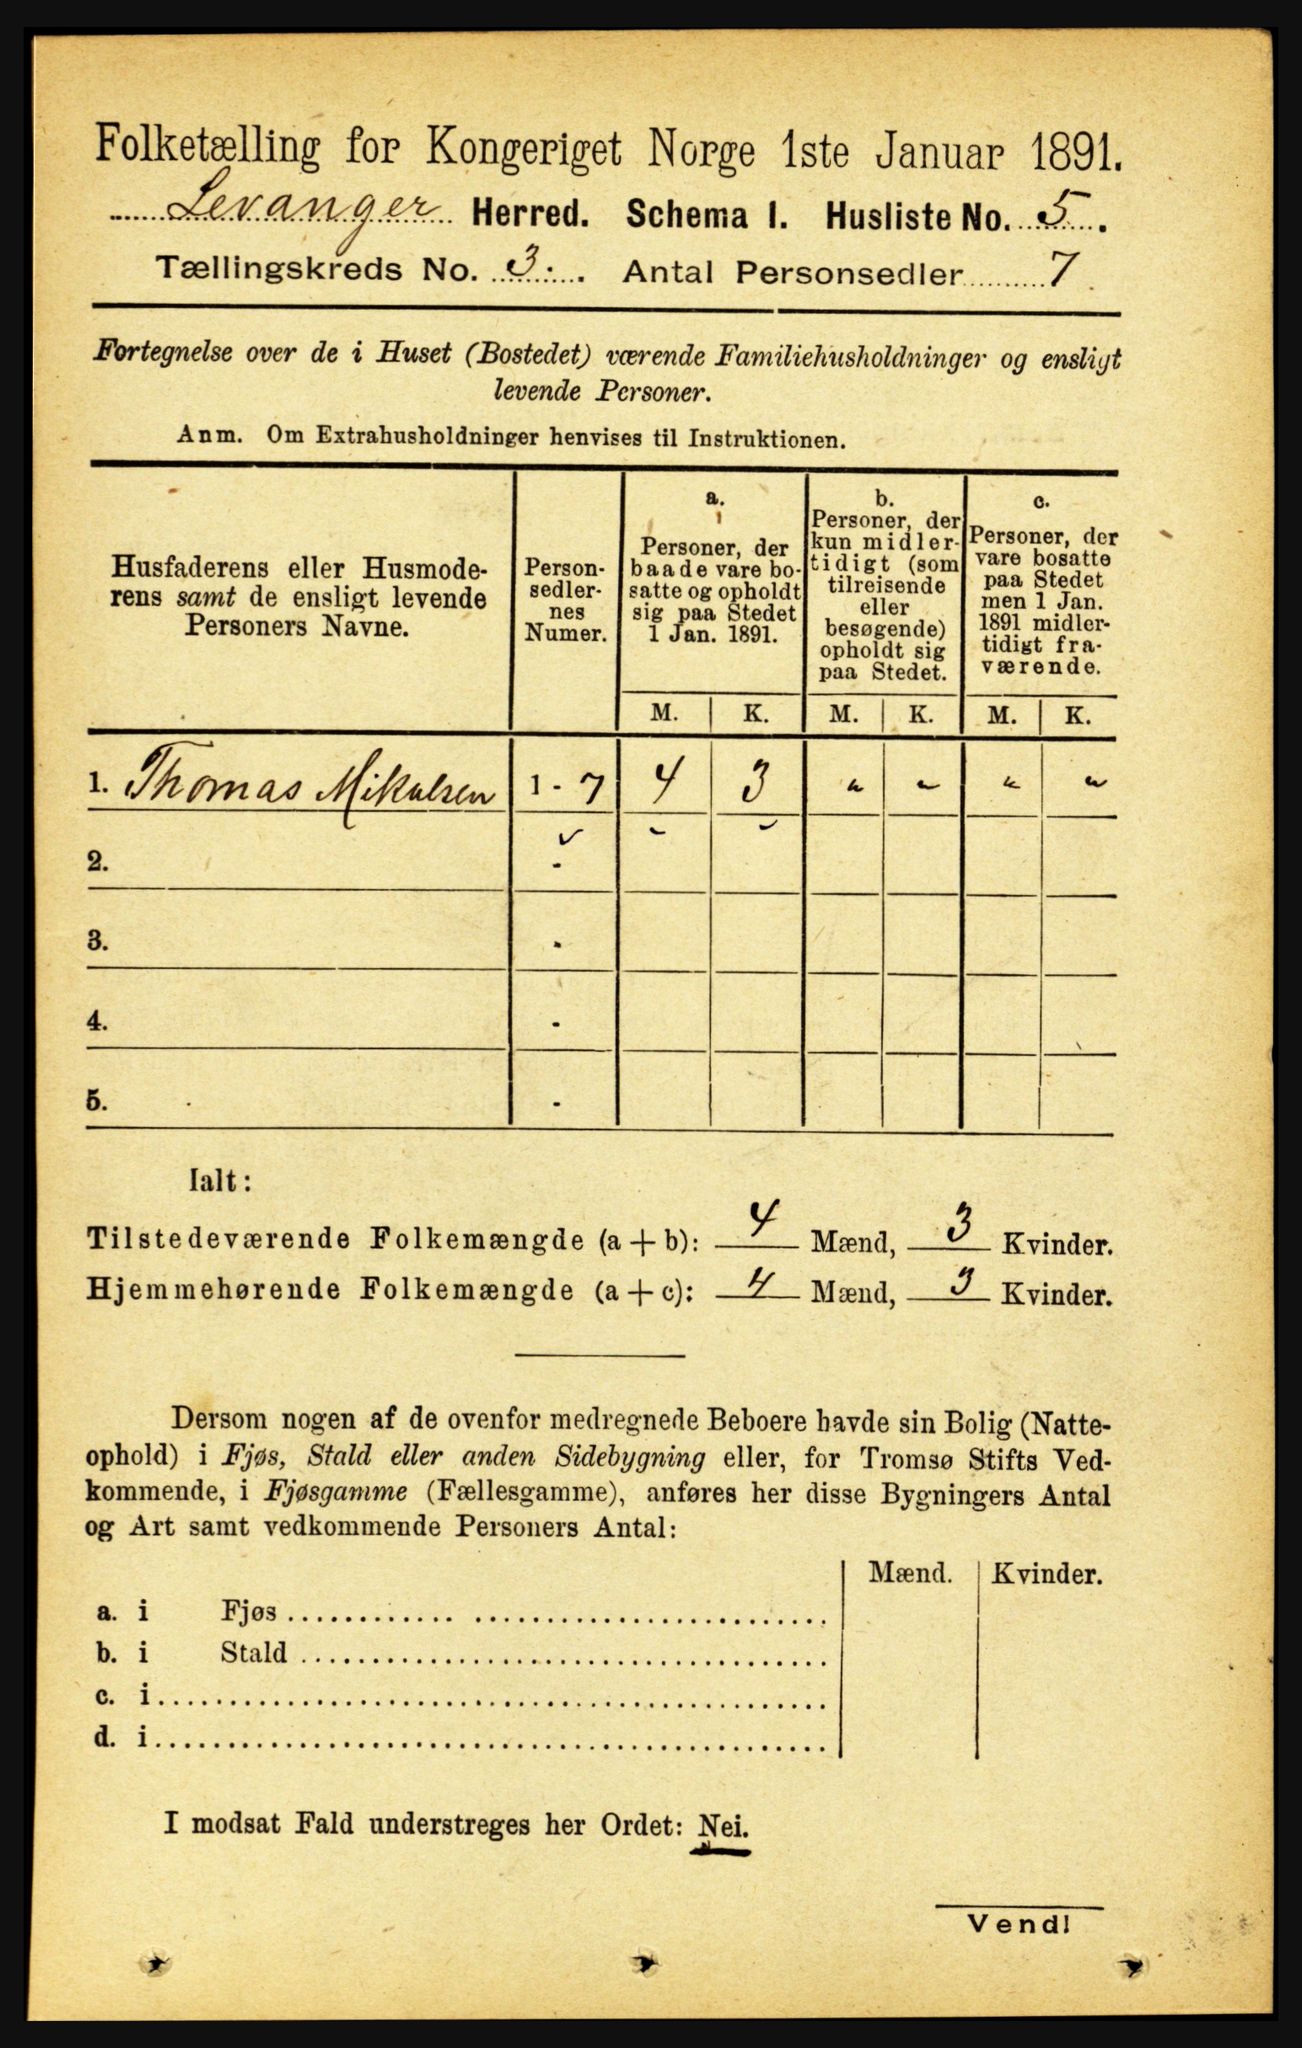 Folketælling for Kongeriget Norge 1ste Januar 1891.
Levanger Herred. Schema I. Husliste No. 5.
Tællingskreds No. 3. Antal Personsedler 7
Fortegnelse over de i Huset (Bostedet) værende Familiehusholdninger og ensligt
levende Personer.
Anm. Om Extrahusholdninger henvises til Instruktionen.
Husfaderens eller Husmode-
rens samt de ensligt levende
Personers Navne.
Person-
sedler-
nes
Numer.
a.
Personer, der
baade vare bo-
satte og opholdt
sig paa Stedet
1 Jan. 1891.
b.
Personer, der
kun midler-
tidigt (som
tilreisende
eller
besøgende)
opholdt sig
paa Stedet.
c.
Personer, der
vare bosatte
paa Stedet
men 1 Jan.
1891 midler-
tidigt fra-
værende.
M. K. M. K. M. K.
1. Thomas Mikalsen 1 - 7 4 3 " " " "
2. -
3. -
4. -
5. -
Ialt:
Tilstedeværende Folkemængde (a + b): 4 Mænd, 3 Kvinder.
Hjemmehørende Folkemængde (a + c): 4 Mænd, 3 Kvinder.
Dersom nogen af de ovenfor medregnede Beboere havde sin Bolig (Natte-
ophold) i Fjøs, Stald eller anden Sidebygning eller, for Tromsø Stifts Ved-
kommende, i Fjøsgamme (Fællesgamme), anføres her disse Bygningers Antal
og Art samt vedkommende Personers Antal:
Mænd. Kvinder.
a. i Fjøs
b. i Stald
c. i
d. i
I modsat Fald understreges her Ordet: Nei.
Vend!